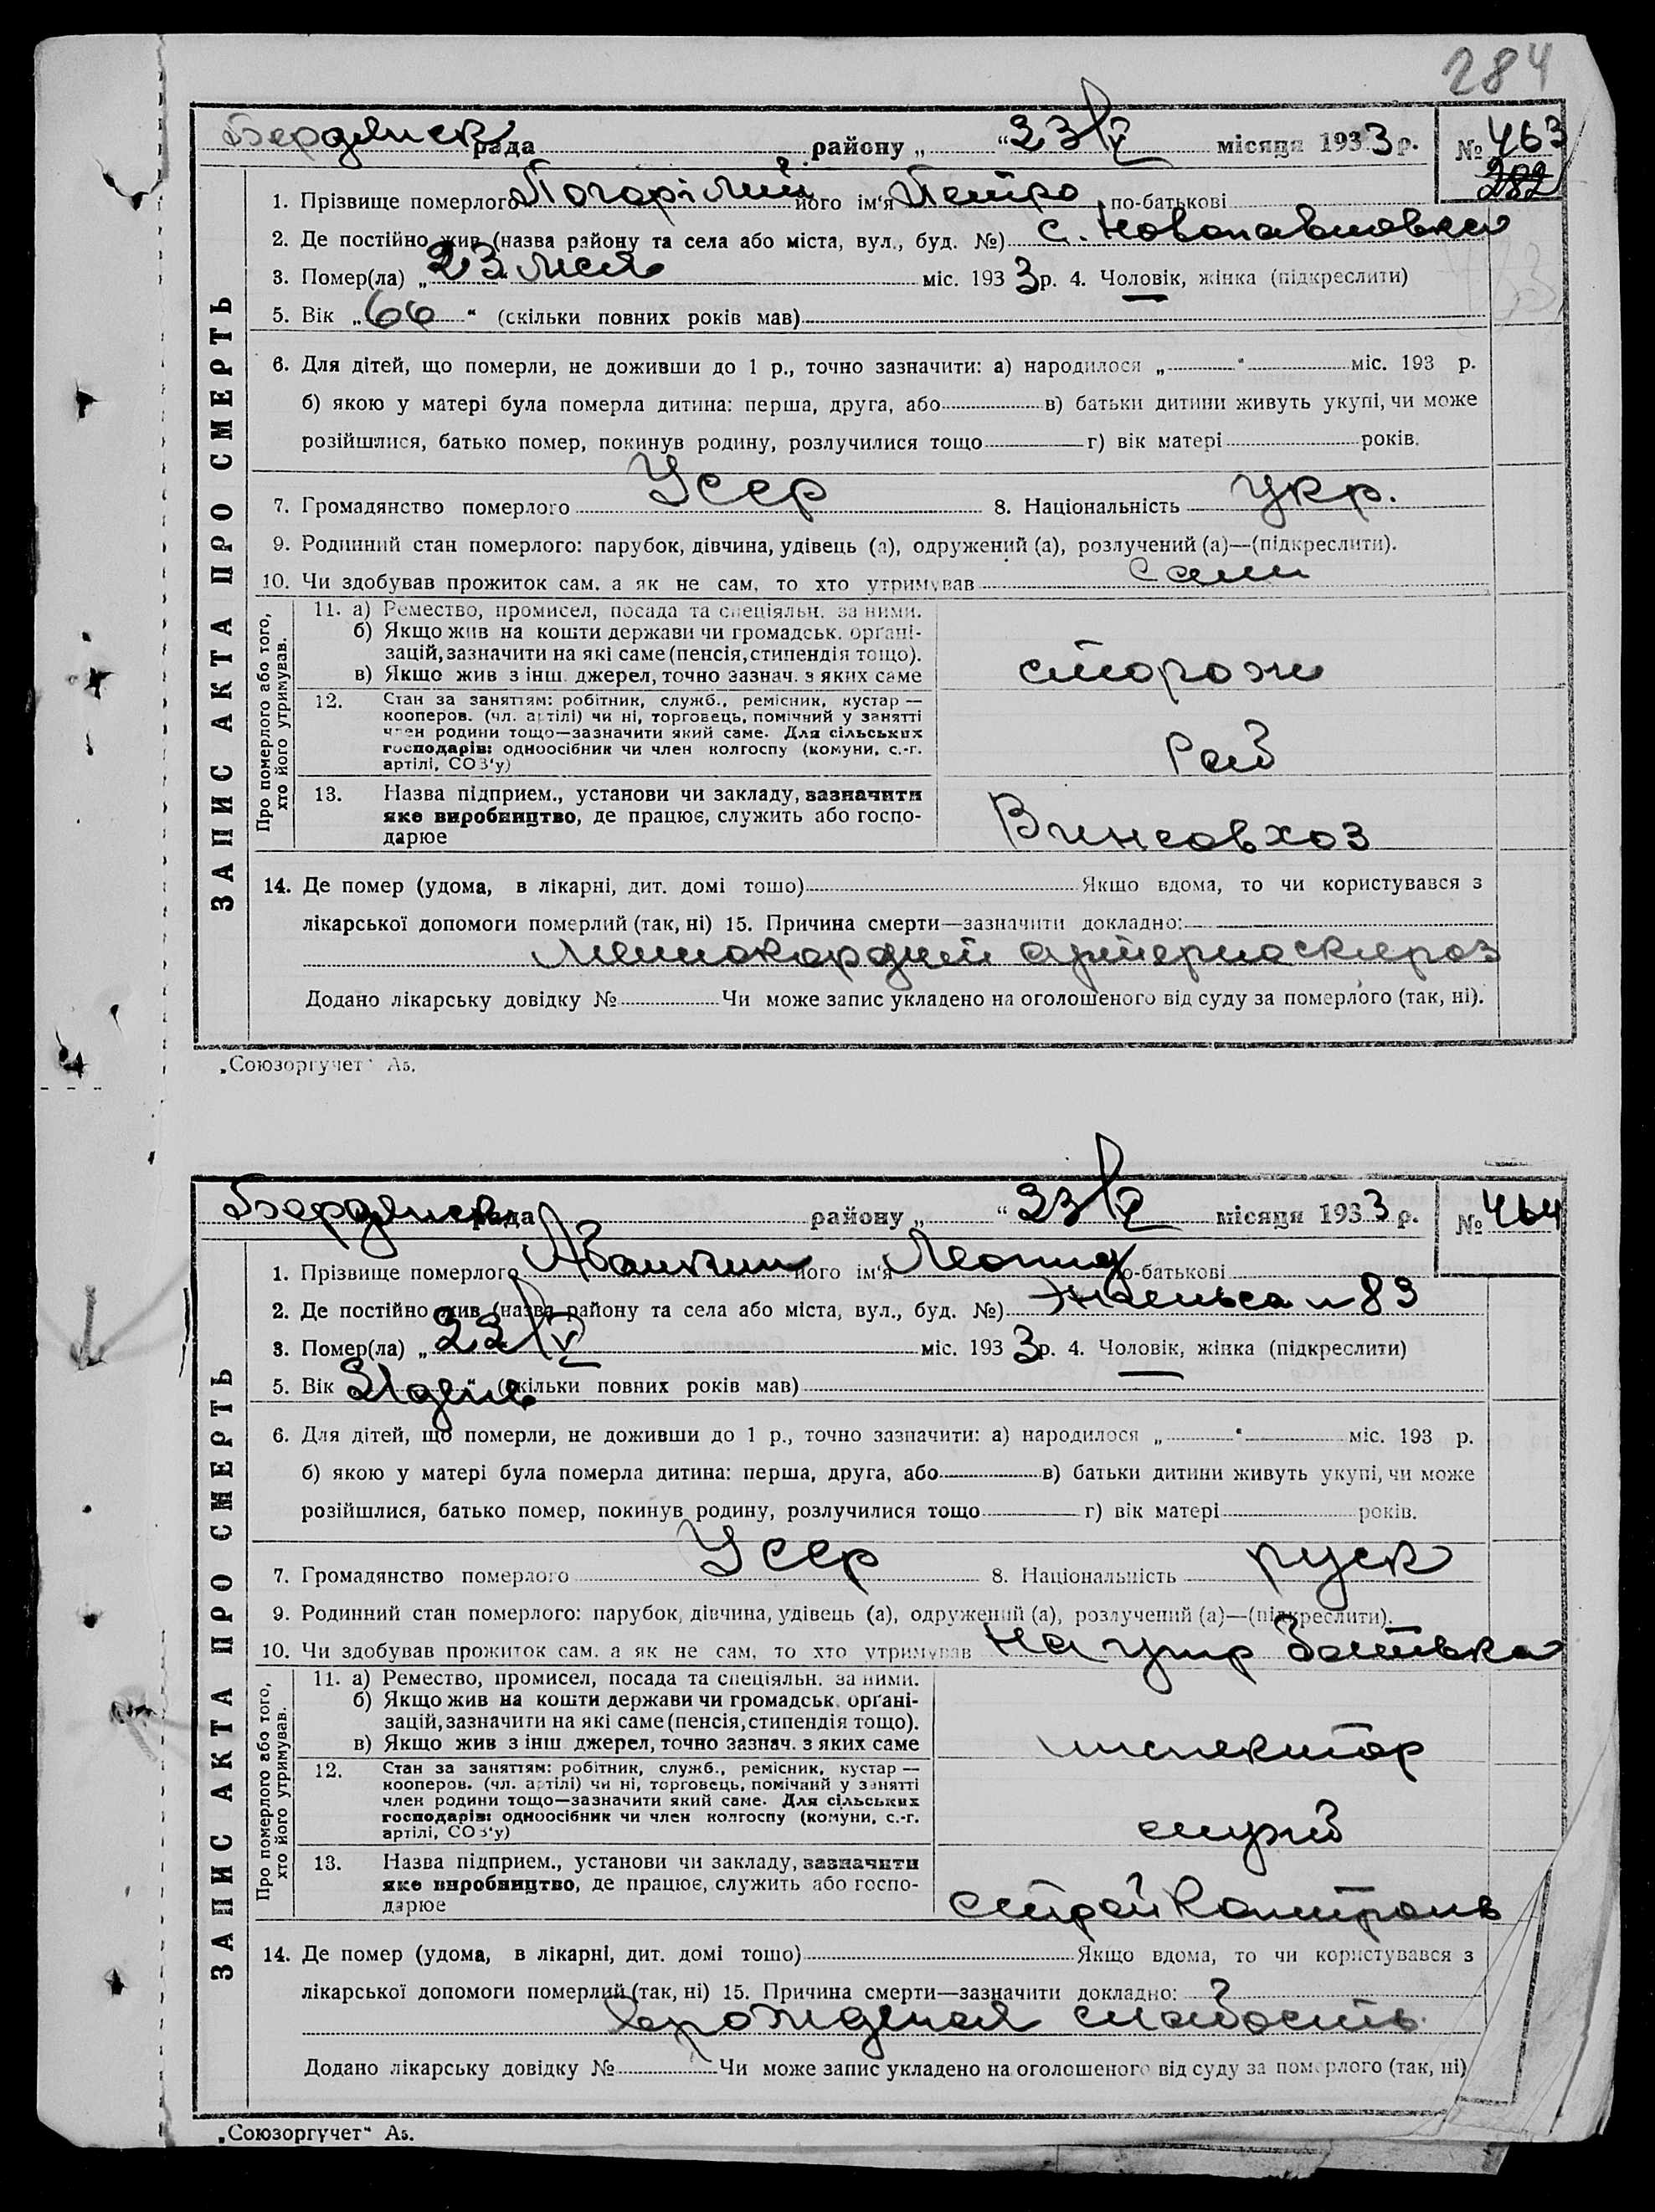 284
Бердянск рада району „ “ 23/V місяця 1933 р. № 463
282
1. Прізвище померлого Погорілий його ім'я Петро по-батькові
2. Де постійно жив (назва району та села або міста, вул., буд. №) с. Новопавловка
3. Помер(ла) „ 23 мая міс. 1933 р. 4. Чоловік, жінка (підкреслити)
5. Вік „ 66 “ (скільки повних років мав)
6. Для дітей, що померли, не доживши до 1 р., точно зазначити: а) народилося „ “ міс. 193 р.
б) якою у матері була померла дитина: перша, друга, або в) батьки дитини живуть укупі, чи може
розійшлися, батько помер, покинув родину, розлучилися тощо г) вік матері років.
7. Громадянство померлого Усср 8. Національність укр.
9. Родинний стан померлого: парубок, дівчина, удівець (а), одружений (а), розлучений (а)—(підкреслити).
10. Чи здобував прожиток сам. а як не сам, то хто утримував Сам
ЗАПИС АКТА ПРО СМЕРТЬ
Про померлого або того, хто його утримував.
11. а) Ремество, промисел, посада та спеціяльн. за ними.
б) Якщо жив на кошти держави чи громадськ. органі-
зацій, зазначити на які саме (пенсія, стипендія тощо).
в) Якщо жив з інш. джерел, точно зазнач. з яких саме сторож
12. Стан за заняттям: робітник, служб., ремісник, кустар —
кооперов. (чл. артілі) чи ні, торговець, помічний у занятті
член родини тощо—зазначити який саме. Для сільських
господарів: одноосібник чи член колгоспу (комуни, с.-г.
артілі, СОЗ'у) Раб
13. Назва підприєм., установи чи закладу, зазначити
яке виробництво, де працює, служить або госпо-
дарює Винсовхоз
14. Де помер (удома, в лікарні, дит. домі тощо) Якщо вдома, то чи користувався з
лікарської допомоги померлий (так, ні) 15. Причина смерти—зазначити докладно:
артериосклероз
Додано лікарську довідку № Чи може запис укладено на оголошеного від суду за померлого (так, ні).
„Союзоргучет“ А5.
Бердянск рада району „ “ 23/V місяця 1933 р. № 464
1. Прізвище померлого його ім'я Леонид по-батькові
2. Де постійно жив (назва району та села або міста, вул., буд. №) № 83
3. Помер(ла) „ 22/V міс. 1933 р. 4. Чоловік, жінка (підкреслити)
5. Вік „ “ (скільки повних років мав)
6. Для дітей, що померли, не доживши до 1 р., точно зазначити: а) народилося „ “ міс. 193 р.
б) якою у матері була померла дитина: перша, друга, або в) батьки дитини живуть укупі, чи може
розійшлися, батько помер, покинув родину, розлучилися тощо г) вік матері років.
7. Громадянство померлого Усср 8. Національність руск
9. Родинний стан померлого: парубок, дівчина, удівець (а), одружений (а), розлучений (а)—(підкреслити).
10. Чи здобував прожиток сам. а як не сам, то хто утримував На утр Батька
ЗАПИС АКТА ПРО СМЕРТЬ
Про померлого або того, хто його утримував.
11. а) Ремество, промисел, посада та спеціяльн. за ними.
б) Якщо жив на кошти держави чи громадськ. органі-
зацій, зазначити на які саме (пенсія, стипендія тощо).
в) Якщо жив з інш. джерел, точно зазнач. з яких саме инспектор
12. Стан за заняттям: робітник, служб., ремісник, кустар —
кооперов. (чл. артілі) чи ні, торговець, помічний у занятті
член родини тощо—зазначити який саме. Для сільських
господарів: одноосібник чи член колгоспу (комуни, с.-г.
артілі, СОЗ'у) служб
13. Назва підприєм., установи чи закладу, зазначити
яке виробництво, де працює, служить або госпо-
дарює Строй Контроль
14. Де помер (удома, в лікарні, дит. домі тощо) Якщо вдома, то чи користувався з
лікарської допомоги померлий (так, ні) 15. Причина смерти—зазначити докладно:
врожденая слабость
Додано лікарську довідку № Чи може запис укладено на оголошеного від суду за померлого (так, ні)
„Союзоргучет“ А5.